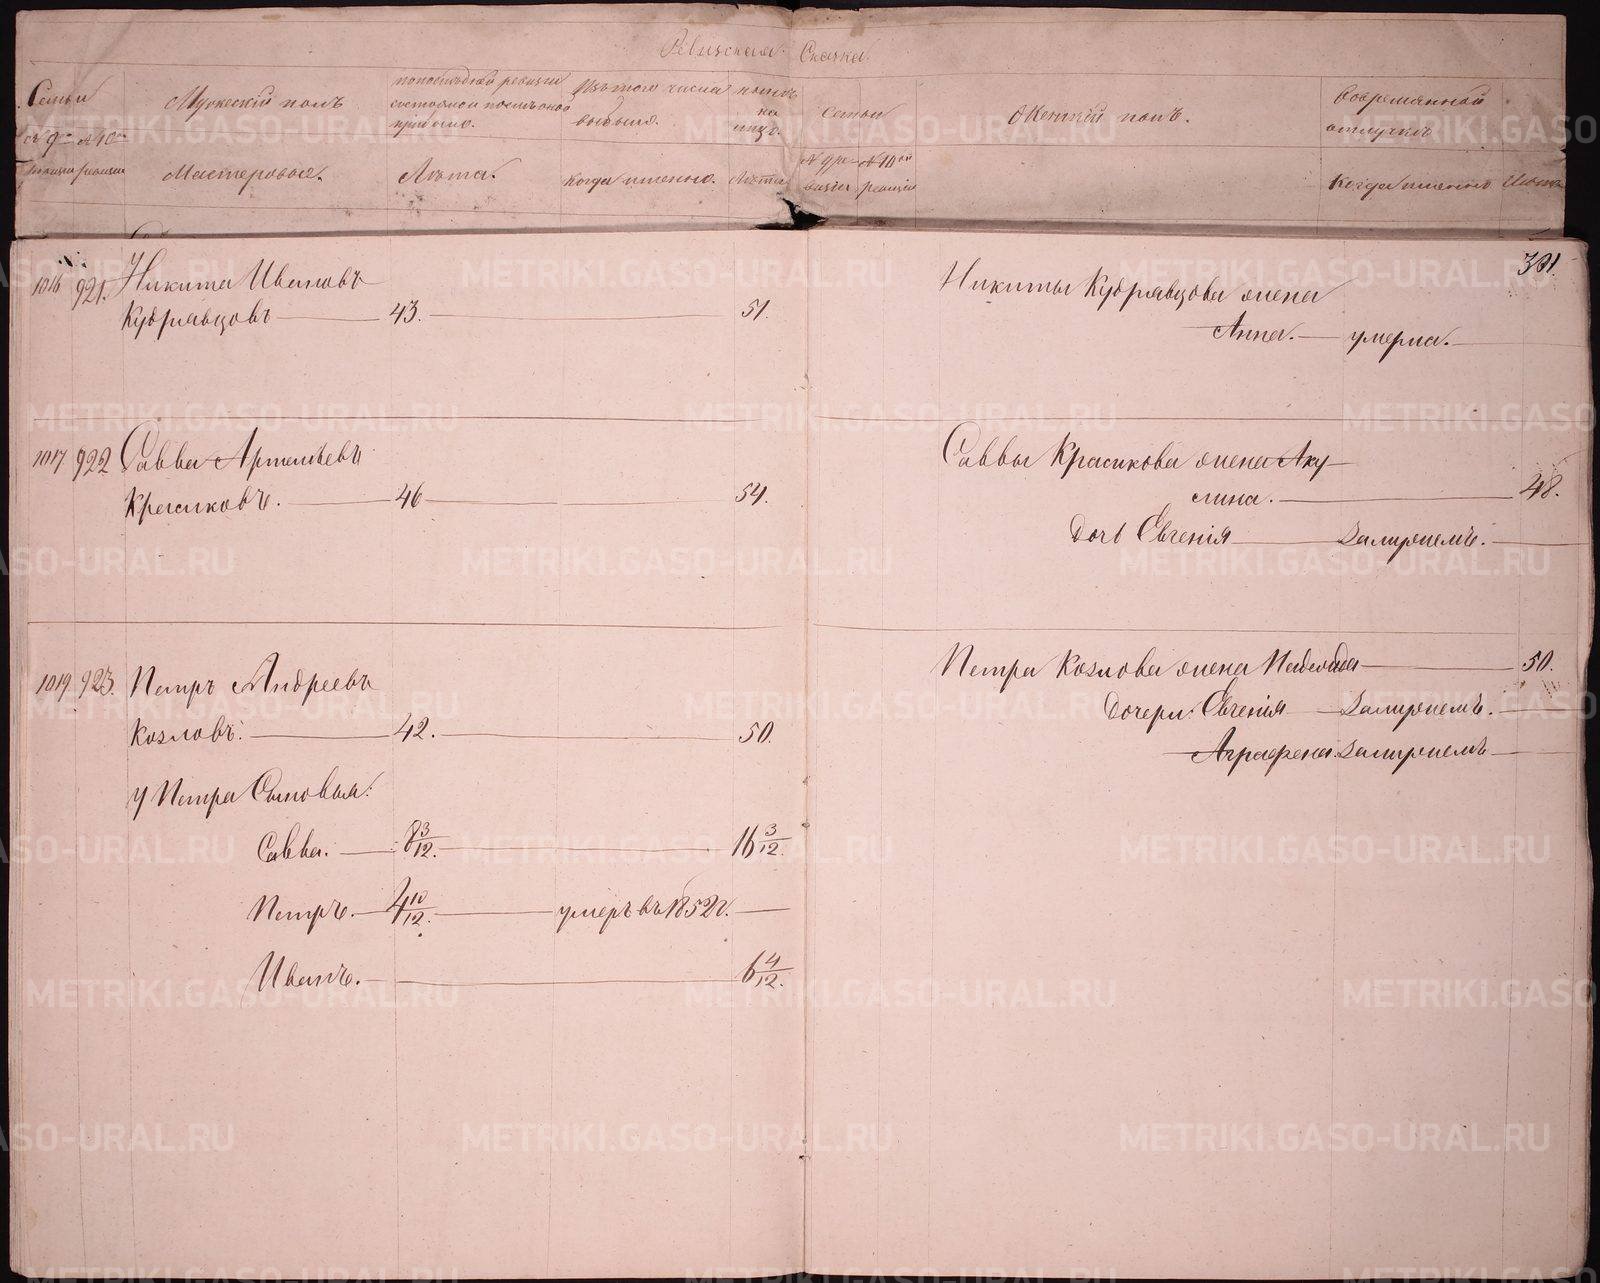 Ревизская Сказка.
Семьи
№ 9й № 10й
ревизіи ревизіи
Мужескій полъ
Мастеровые.
по последней ревизіи
состояло и после оной
прибыло.
Лѣта.
Изъ того числа
выбыло.
когда именно.
ныне
на
лицо.
Лѣта
Семьи
№ 9 ре- № 10й
визіи ревизіи
Женскій полъ.
Во временной
отлучке
Когда именно Лѣта
301.
1016 921. Никита Ивановъ
Кудрявцовъ 43. 51.
Никиты Кудрявцова жена
Анна. умерла.
1017 922 Савва Артемьевъ
Красиковъ. 46 54.
Саввы Красикова жена Аку-
лина. 48.
Дочь Евгенія замужемъ.
1019 923. Петръ Андреевъ
Козловъ. 42. 50.
У Петра Сыновья:
Савва. 8 3/12. 16 3/12.
Петръ. 4 10/12. умеръ въ 1852 г.
Иванъ. 6 4/12.
Петра Козлова жена 50.
Дочери: Евгенія замужемъ.
Аграфена замужемъ
METRIKI.GASO-URAL.RU